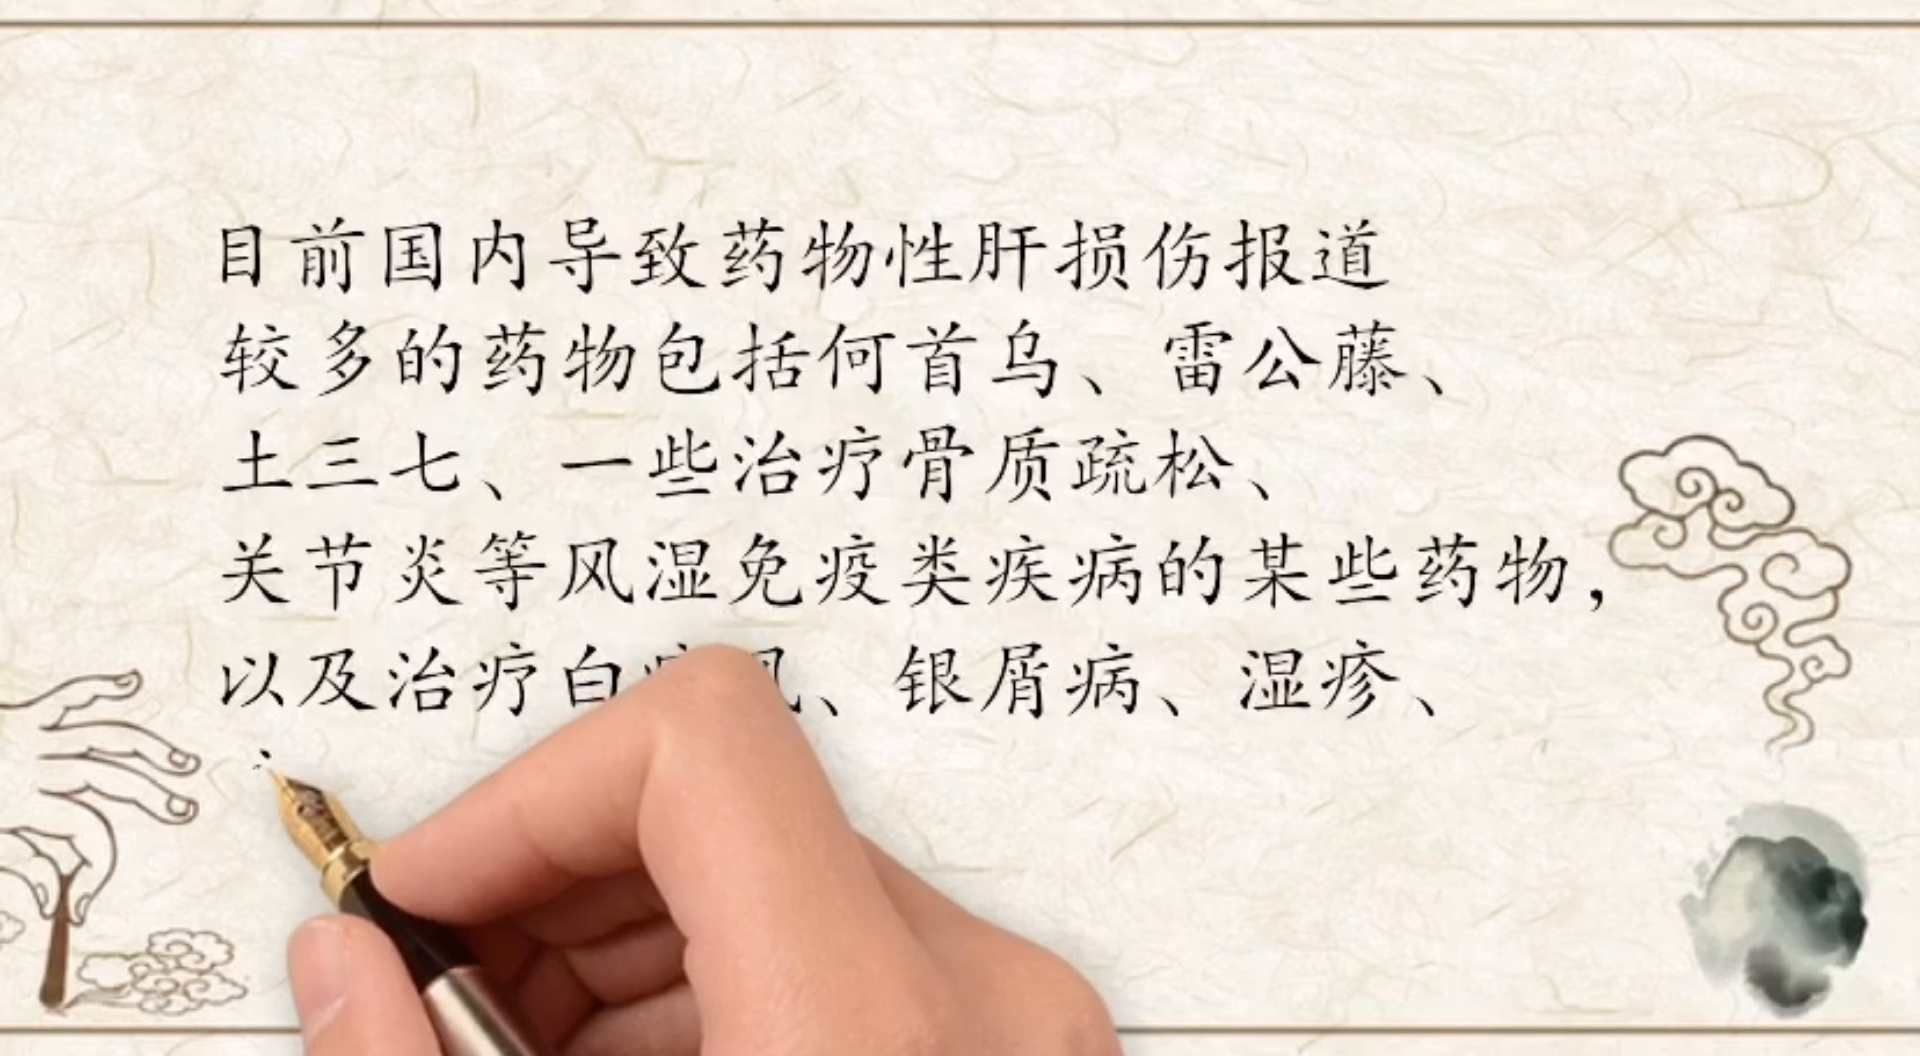 目前国内导致药物性肝损伤报道
较多的药物包括何首乌、雷公藤、
土三七、一些治疗骨质疏松、
关节炎等风湿免疫类疾病的某些药物，
以及治疗白 、银屑病、湿疹、